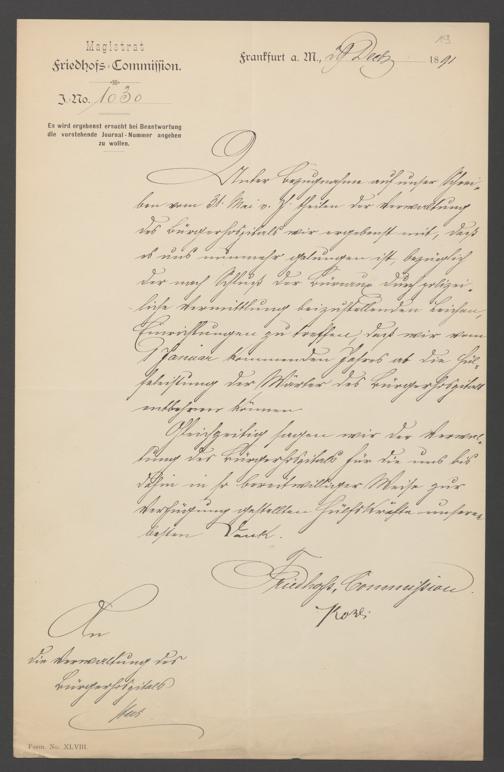 19
Magistrat
Friedhofs-Commission.
Frankfurt a. M., 29 Decb 1891
J.-No. 1030
Es wird ergebenst ersucht bei Beantwortung
die vorstehende Journal-Nummer angeben
zu wollen.
Unter Bezugnahme auf unser Schrei-
ben vom 31. Mai v. J. theilen der Verwaltung
des Bürgerhospitals wir ergebenst mit, daß
es uns nunmehr gelungen ist, bezüglich
der nach Schluß der Büreaux durch polizei-
liche Vermittlung beizustellenden Leichen,
Einrichtungen zu treffen, daß wir vom
1 Januar kommenden Jahres ab die Hül-
feleistung der Wärter des Bürgerhospitals
entbehren können
Gleichzeitig sagen wir der Verwal-
tung des Bürgerhospitals für die uns bis
dahin in so bereitwilliger Weise zur
Verfügung gestellten Hülfskräfte unseren
besten Dank.
Friedhofs-Commission.
An
die Verwaltung des
Bürgerhospitals
hier
Form. No. XLVIII.